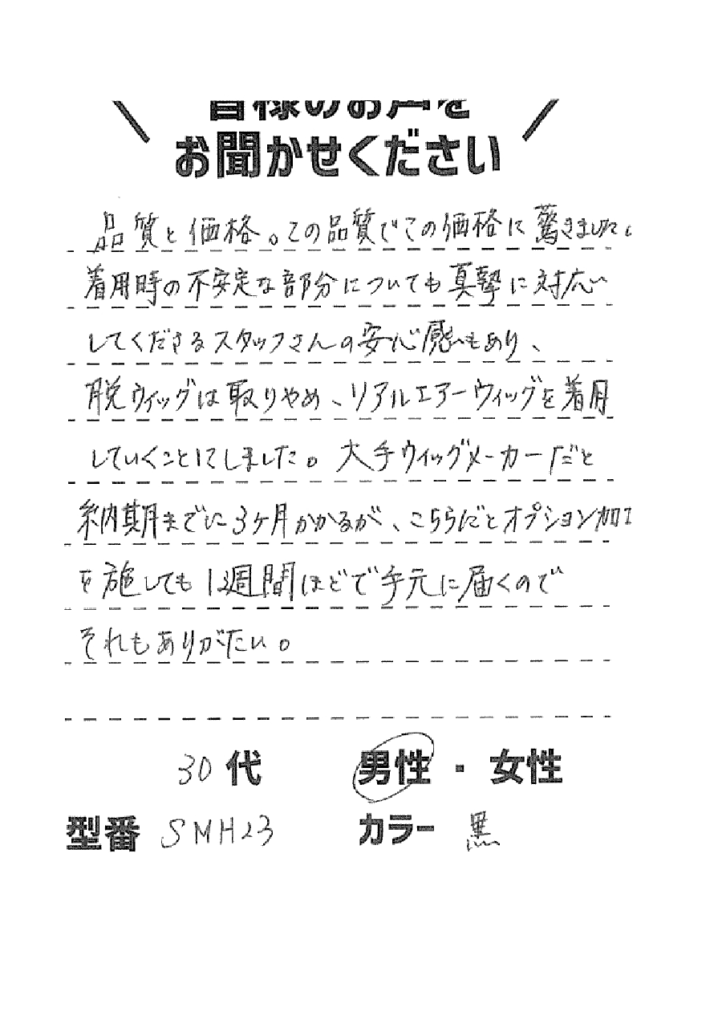 皆様のお声を
お聞かせください
品質と価格。この品質でこの価格に驚きました。
着用時の不安定な部分についても真摯に対応
してくださるスタッフさんの安心感もあり、
脱ウィッグは取りやめ、リアルエアーウィッグを着用
していくことにしました。大手ウィッグメーカーだと
納期までに3ヶ月かかるが、こちらだとオプション加工
を施しても1〜2週間ほどで手元に届くので
それもありがたい。
30代 男性・女性
型番 SMH23 カラー 黒